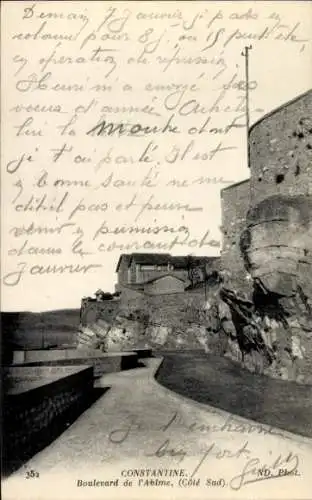 Demain 7 Janvier je pars en
colonne pour 8 j. ou 15 peut être
en opération ou répression
Henri m'a envoyé ses
voeux d'année Achète
lire la Mouke dont
je t'ai parlé. Il est
en bonne santé ne me
dit pas et pense
venir en permission
dans le courant de
Janvier
Je t'embrasse
bien fort
352
CONSTANTINE.
Boulevard de l'Abîme, (Côté Sud).
ND. Phot.